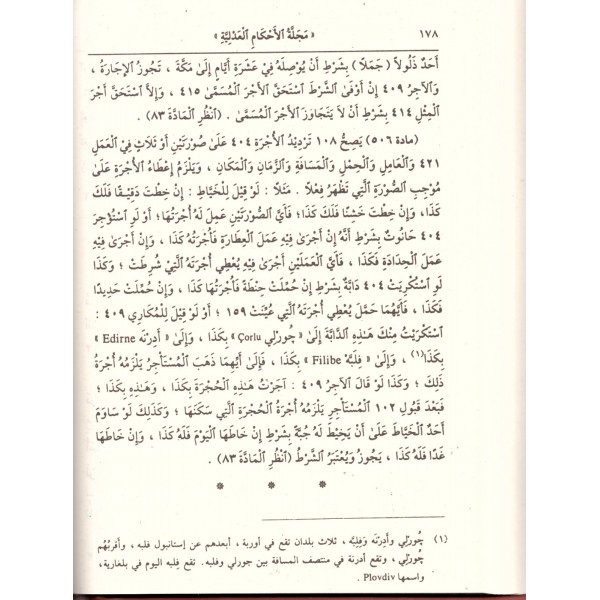 ١٧٨ « مَجَلَّةُ الأَحْكَامِ الْعَدْلِيَّةِ »
أَحَدٌ ذَلُولاً ( جَمَلاً ) بِشَرْطِ أَنْ يُوْصِلَهُ فِيْ عَشَرَةِ أَيَّامٍ إِلَىٰ مَكَّةَ ، تَجُوزُ الإِجَارَةُ ،
وَالآجِرُ ٤٠٩ إِنْ أَوْفَى الشَّرْطَ اسْتَحَقَّ الأَجْرَ الْمُسَمَّىٰ ٤١٥ ، وَإِلاَّ اسْتَحَقَّ أَجْرَ
الْمِثْلِ ٤١٤ بِشَرْطِ أَنْ لاَ يَتَجَاوَزَ الأَجْرَ الْمُسَمَّىٰ . ( اُنْظُرِ الْمَادَّةَ ٨٣ )
( مادة ٥٠٦ ) يَصِحُّ ١٠٨ تَرْدِيْدُ الأُجْرَةِ ٤٠٤ عَلَىٰ صُورَتَيْنِ أَوْ ثَلاَثٍ فِيْ الْعَمَلِ
٤٢١ وَالْعَامِلِ وَالْحِمْلِ وَالْمَسَافَةِ وَالزَّمَانِ وَالْمَكَانِ ، وَيَلْزَمُ إِعْطَاءُ الأُجْرَةِ عَلَىٰ
مُوْجِبِ الصُّوْرَةِ الَّتِيْ تَظْهَرُ فِعْلاً . مَثَلاً : لَوْ قِيْلَ لِلْخَيَّاطِ : إِنْ خِطْتَ دَقِيْقًا فَلَكَ
كَذَا، وَإِنْ خِطْتَ خَشِنًا فَلَكَ كَذَا؛ فَأَيُّ الصُّوْرَتَيْنِ عَمِلَ لَهُ أُجْرَتُهَا؛ أَوْ لَوِ اسْتُؤْجِرَ
٤٠٤ حَانُوتٌ بِشَرْطِ أَنَّهُ إِنْ أُجْرِيَ فِيْهِ عَمَلُ الْعِطَارَةِ فَأُجْرَتُهُ كَذَا ، وَإِنْ أُجْرِيَ فِيْهِ
عَمَلُ الْحِدَادَةِ فَكَذَا ، فَأَيَّ الْعَمَلَيْنِ أَجْرَىٰ فِيْهِ يُعْطِي أُجْرَتَهُ الَّتِيْ شُرِطَتْ ؛ وَكَذَا
لَوِ اسْتُكْرِيَتْ ٤٠٤ دَابَّةٌ بِشَرْطِ إِنْ حُمِّلَتْ حِنْطَةً فَأُجْرَتُهَا كَذَا ، وَإِنْ حُمِّلَتْ حَدِيْدًا
فَكَذَا ، فَأَيَّهُمَا حَمَّلَ يُعْطِي أُجْرَتَهُ الَّتِيْ عُيِّنَتْ ١٥٩ ؛ أَوْ لَوْ قِيْلَ لِلْمُكَارِي ٤٠٩ :
اسْتَكْرَيْتُ مِنْكَ هَـٰذِهِ الدَّابَّةَ إِلَىٰ « چُورلي Çorlu » بِكَذَا ، وَإِلَىٰ « أَدِرْنَه Edirne »
بِكَذَا(١) ، وَإِلَىٰ « فِلِبَهْ Filibe » بِكَذَا ، فَإِلَى أَيِّهِمَا ذَهَبَ الْمُسْتَأْجِرُ يَلْزَمُهُ أُجْرَةُ
ذَلِكَ ؛ وَكَذَا لَوْ قَالَ الآجِرُ ٤٠٩ : آجَرْتُ هَـٰذِهِ الْحُجْرَةَ بِكَذَا ، وَهَـٰذِهِ بِكَذَا ؛
فَبَعْدَ قَبُولِ ١٠٢ الْمُسْتَأْجِرِ يَلْزَمُهُ أُجْرَةُ الْحُجْرَةِ الَّتِيْ سَكَنَهَا ؛ وَكَذَلِكَ لَوْ سَاوَمَ
أَحَدٌ الْخَيَّاطَ عَلَىٰ أَنْ يَخِيْطَ لَهُ جُبَّةً بِشَرْطِ إِنْ خَاطَهَا الْيَوْمَ فَلَهُ كَذَا ، وَإِنْ خَاطَهَا
غَدًا فَلَهُ كَذَا ، يَجُوزُ وَيُعْتَبَرُ الشَّرْطُ ( اُنْظُرِ الْمَادَّةَ ٨٣ ) .
* * *
(١) چُورلي وأدِرْنَه وَفِلِبَه ، ثلاث بلدان تقع في أوربة ، أبعدهم عن إستانبول فلبه ، وأقربُهُم
چُورلي ، وتقع أدرنة في منتصف المسافة بين جورلي وفلبه. تقع فِلبه اليوم في بلغارية،
واسمها Plovdiv .